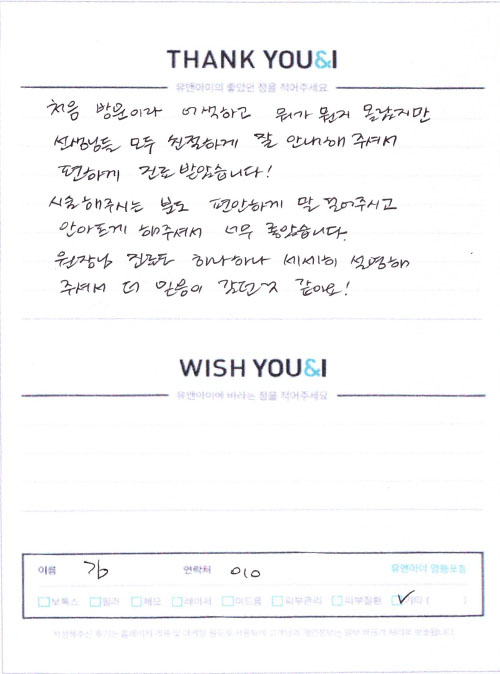 THANK YOU&I
유앤아이의 좋았던 점을 적어주세요
처음 방문이라 어색하고 뭐가 뭔지 몰랐지만
선생님들 모두 친절하게 잘 안내해 주셔서
편하게 진료 받았습니다!
시술해주시는 분도 편안하게 말 걸어주시고
안아프게 해주셔서 너무 좋았습니다.
원장님 진료도 하나하나 세세히 설명해
주셔서 더 믿음이 갔던 것 같아요!
WISH YOU&I
유앤아이에 바라는 점을 적어주세요
이름 김 연락처 010 유앤아이 영등포점
보톡스 필러 제모 레이저 여드름 피부관리 피부질환 기타 ( )